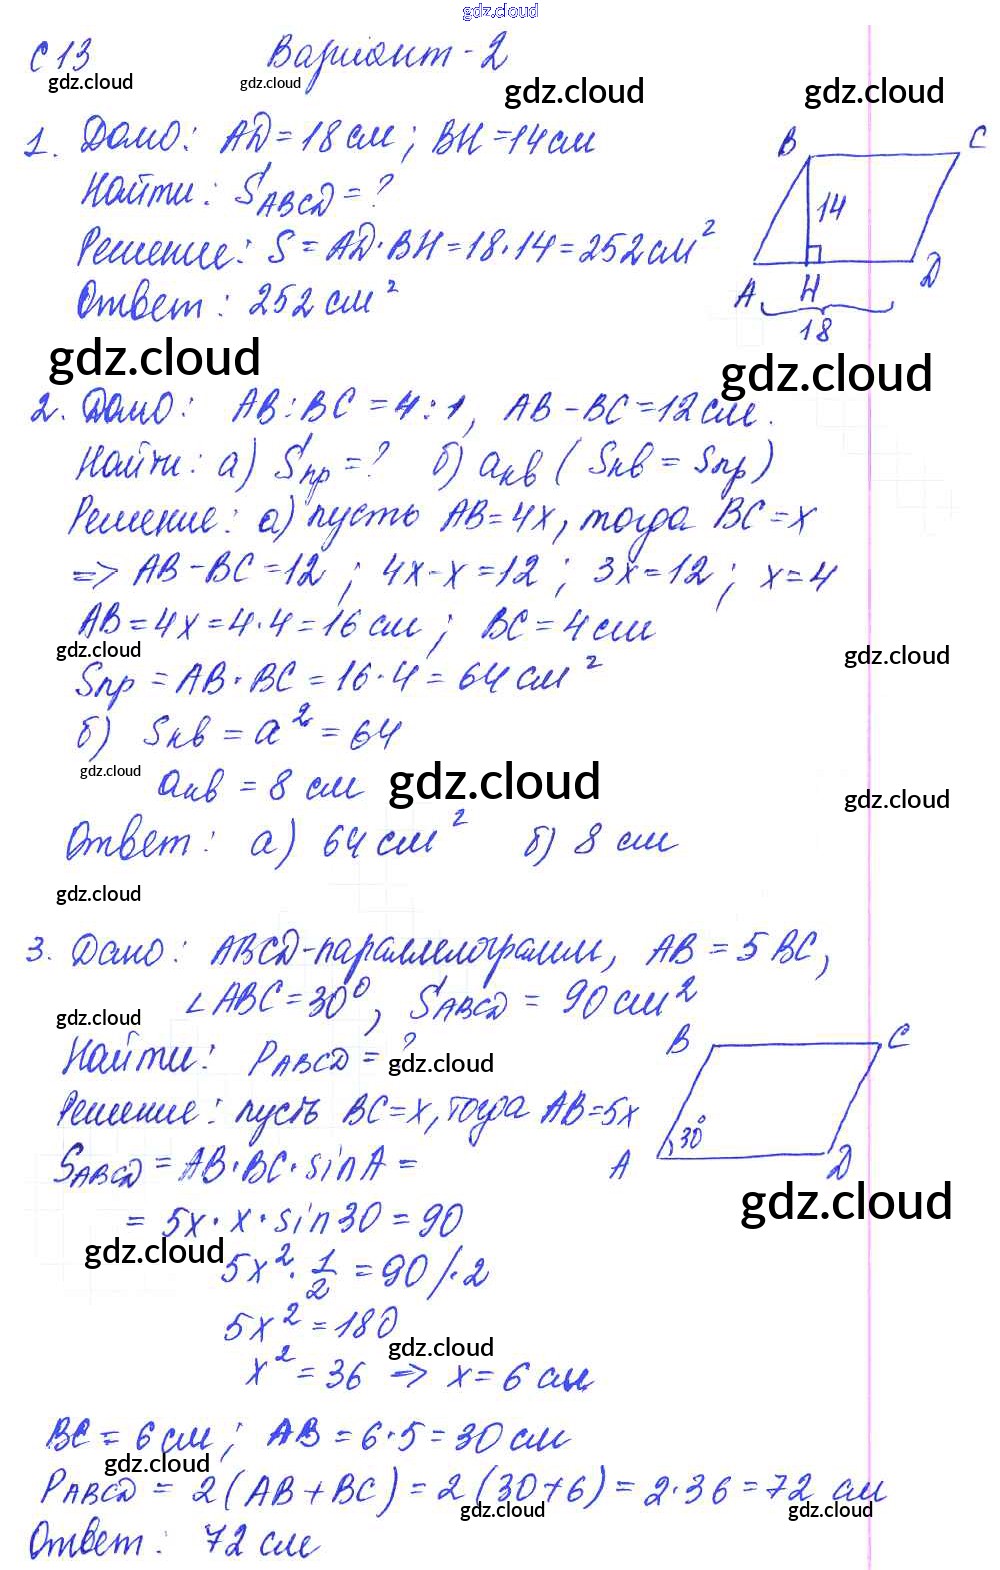 gdz.cloud
С 13 Вариант - 2
gdz.cloud gdz.cloud gdz.cloud gdz.cloud
1. Дано: AD = 18 см ; BH = 14 см
Найти: S ABCD = ?
Решение: S = AD · BH = 18 · 14 = 252 см²
Ответ: 252 см²
B C
14
A H D
18
gdz.cloud gdz.cloud
2. Дано: AB : BC = 4 : 1, AB - BC = 12 см.
Найти: а) Sпр = ? б) aкв ( Sкв = Sпр )
Решение: а) пусть AB = 4x, тогда BC = x
=> AB - BC = 12 ; 4x - x = 12 ; 3x = 12 ; x = 4
AB = 4x = 4 · 4 = 16 см ; BC = 4 см
gdz.cloud gdz.cloud
Sпр = AB · BC = 16 · 4 = 64 см²
б) Sкв = a² = 64
gdz.cloud
aкв = 8 см
gdz.cloud gdz.cloud
Ответ: а) 64 см² б) 8 см
gdz.cloud
3. Дано: ABCD - параллелограмм, AB = 5 BC,
∠ABC = 30°, S ABCD = 90 см²
gdz.cloud
Найти: P ABCD = ?
gdz.cloud
B C
30°
A D
Решение: пусть BC = x, тогда AB = 5x
S ABCD = AB · BC · sin A =
gdz.cloud
= 5x · x · sin 30 = 90
gdz.cloud
5x² · 1/2 = 90 /· 2
5x² = 180
gdz.cloud
x² = 36 => x = 6 см
BC = 6 см ; AB = 6 · 5 = 30 см
gdz.cloud
P ABCD = 2 ( AB + BC ) = 2 ( 30 + 6 ) = 2 · 36 = 72 см
gdz.cloud gdz.cloud
Ответ: 72 см